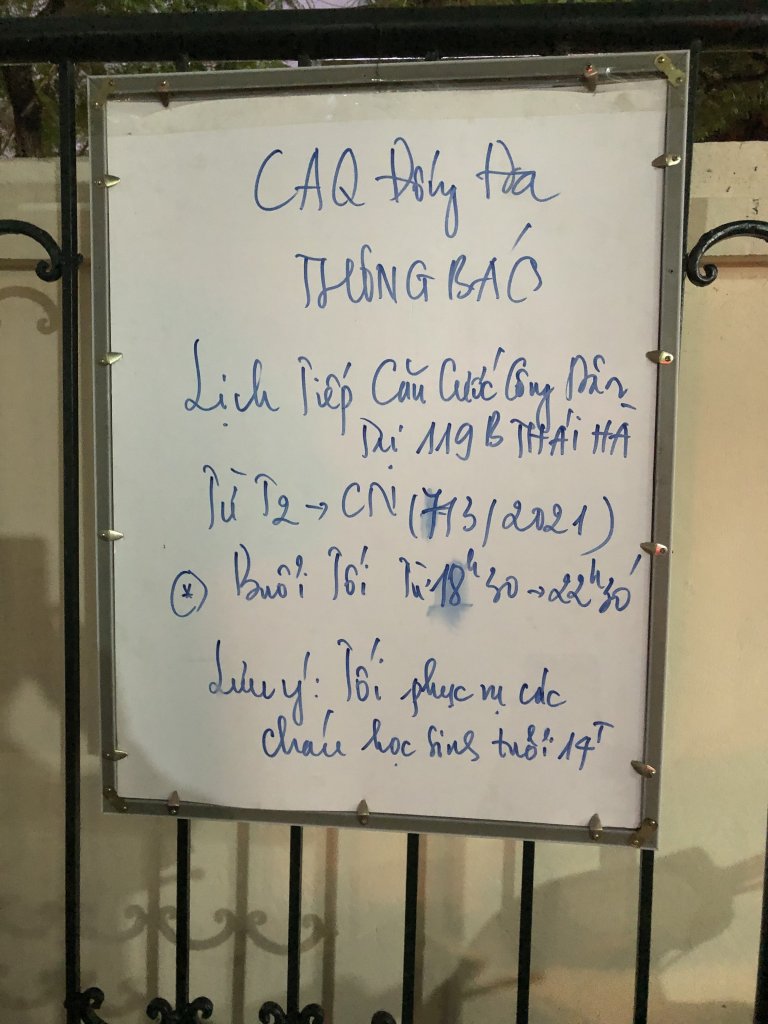 CAQ Đống Đa
THÔNG BÁO
Lịch Tiếp Căn Cước Công Dân
Tại 119B THÁI HÀ
Từ T2 → CN (7/3/2021)
* Buổi Tối Từ 18h30 → 22h30'
Lưu ý: Tối phục vụ các
cháu học sinh tuổi 14T